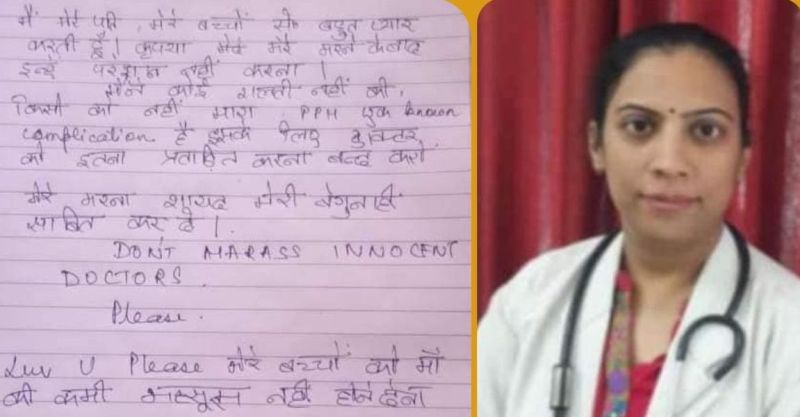 मैं मेरे पति, मेरे बच्चों से बहुत प्यार
करती हूँ। कृपया मेरे मरने के बाद
इन्हें परेशान नहीं करना।
मैंने कोई गलती नहीं की,
किसी को नहीं मारा, PPH एक known
complication है, इसके लिए डॉक्टर
को इतना प्रताड़ित करना बन्द करो
मेरा मरना शायद मेरी बेगुनाही
साबित कर दे।
DON'T HARASS INNOCENT
DOCTORS.
Please.
Luv u Please मेरे बच्चों को माँ
की कमी महसूस नहीं होने देना